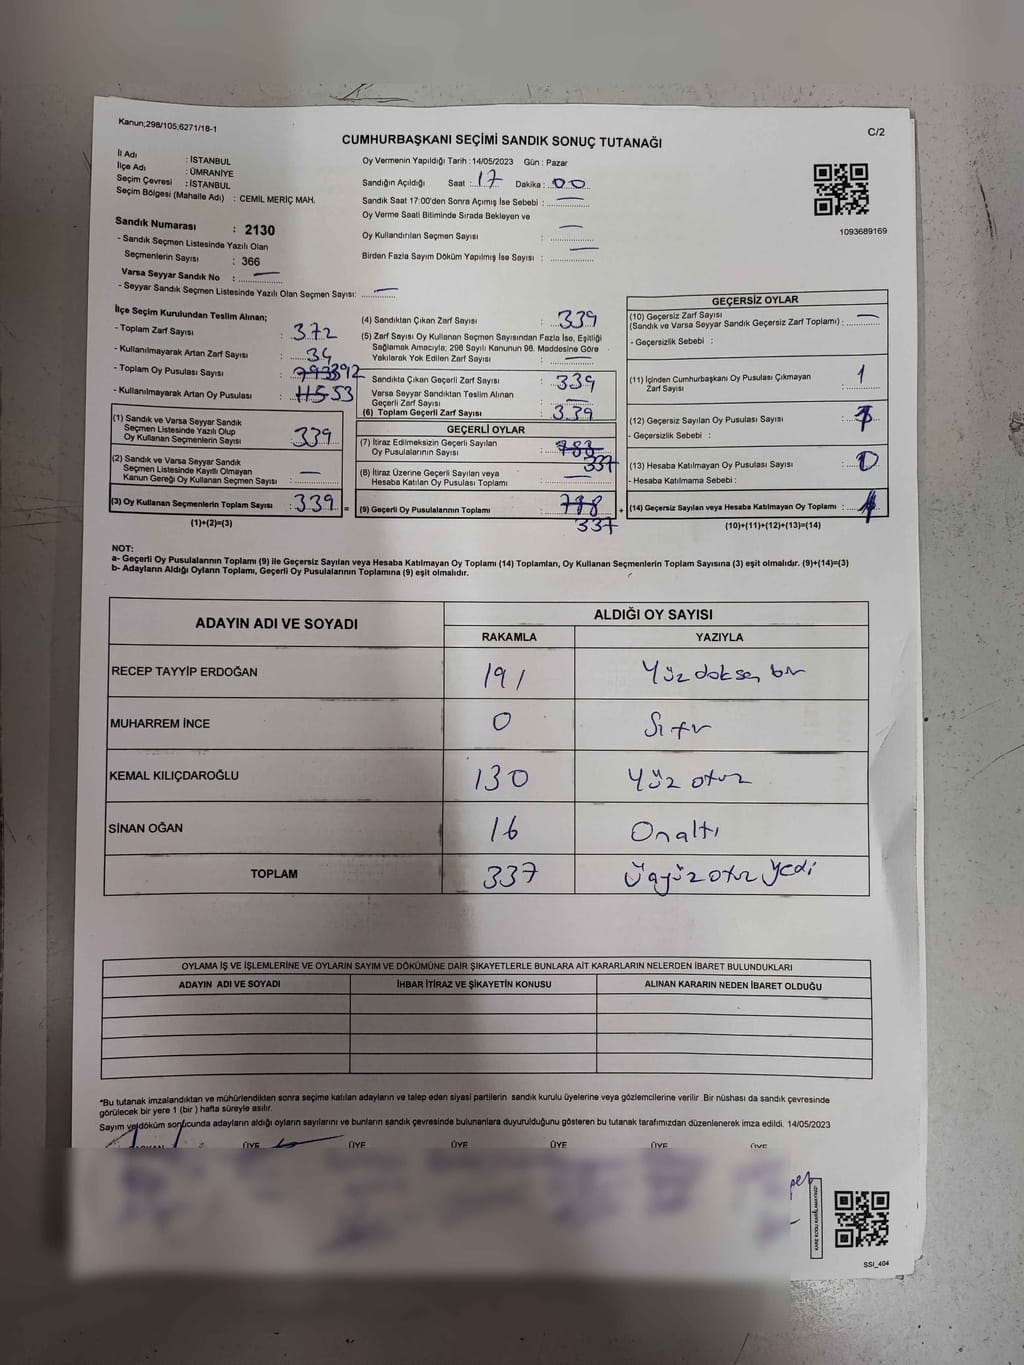 Kanun;298/105;6271/18-1
C/2
CUMHURBAŞKANI SEÇİMİ SANDIK SONUÇ TUTANAĞI
İl Adı : İSTANBUL
İlçe Adı : ÜMRANİYE
Seçim Çevresi : İSTANBUL
Seçim Bölgesi (Mahalle Adı) : CEMİL MERİÇ MAH.
Oy Vermenin Yapıldığı Tarih : 14/05/2023 Gün : Pazar
Sandığın Açıldığı Saat : 17 Dakika : 00
Sandık Saat 17:00'den Sonra Açımış İse Sebebi : —
Oy Verme Saati Bitiminde Sırada Bekleyen ve
Oy Kullandırılan Seçmen Sayısı : —
Birden Fazla Sayım Döküm Yapılmış İse Sayısı : —
1093689169
Sandık Numarası : 2130
- Sandık Seçmen Listesinde Yazılı Olan
Seçmenlerin Sayısı : 366
Varsa Seyyar Sandık No : —
- Seyyar Sandık Seçmen Listesinde Yazılı Olan Seçmen Sayısı: —
İlçe Seçim Kurulundan Teslim Alınan;
- Toplam Zarf Sayısı : 372
- Kullanılmayarak Artan Zarf Sayısı : 34
- Toplam Oy Pusulası Sayısı : 392
- Kullanılmayarak Artan Oy Pusulası : 53
(1) Sandık ve Varsa Seyyar Sandık
Seçmen Listesinde Yazılı Olup
Oy Kullanan Seçmenlerin Sayısı : 339
(2) Sandık ve Varsa Seyyar Sandık
Seçmen Listesinde Kayıtlı Olmayan
Kanun Gereği Oy Kullanan Seçmen Sayısı : —
(3) Oy Kullanan Seçmenlerin Toplam Sayısı : 339 =
(1)+(2)=(3)
(4) Sandıktan Çıkan Zarf Sayısı : 339
(5) Zarf Sayısı Oy Kullanan Seçmen Sayısından Fazla İse, Eşitliği
Sağlamak Amacıyla; 298 Sayılı Kanunun 98. Maddesine Göre
Yakılarak Yok Edilen Zarf Sayısı : —
Sandıkta Çıkan Geçerli Zarf Sayısı : 339
Varsa Seyyar Sandıktan Teslim Alınan
Geçerli Zarf Sayısı : —
(6) Toplam Geçerli Zarf Sayısı : 339
GEÇERLİ OYLAR
(7) İtiraz Edilmeksizin Geçerli Sayılan
Oy Pusulalarının Sayısı : 337
(8) İtiraz Üzerine Geçerli Sayılan veya
Hesaba Katılan Oy Pusulası Toplamı : —
(9) Geçerli Oy Pusulalarının Toplamı : 337 +
GEÇERSİZ OYLAR
(10) Geçersiz Zarf Sayısı
(Sandık ve Varsa Seyyar Sandık Geçersiz Zarf Toplamı) : —
- Geçersizlik Sebebi :
(11) İçinden Cumhurbaşkanı Oy Pusulası Çıkmayan
Zarf Sayısı : 1
(12) Geçersiz Sayılan Oy Pusulası Sayısı :
- Geçersizlik Sebebi :
(13) Hesaba Katılmayan Oy Pusulası Sayısı : 0
- Hesaba Katılmama Sebebi :
(14) Geçersiz Sayılan veya Hesaba Katılmayan Oy Toplamı :
(10)+(11)+(12)+(13)=(14)
NOT:
a- Geçerli Oy Pusulalarının Toplamı (9) ile Geçersiz Sayılan veya Hesaba Katılmayan Oy Toplamı (14) Toplamları, Oy Kullanan Seçmenlerin Toplam Sayısına (3) eşit olmalıdır. (9)+(14)=(3)
b- Adayların Aldığı Oyların Toplamı, Geçerli Oy Pusulalarının Toplamına (9) eşit olmalıdır.
ADAYIN ADI VE SOYADI ALDIĞI OY SAYISI
RAKAMLA YAZIYLA
RECEP TAYYİP ERDOĞAN 191 Yüz doksan bir
MUHARREM İNCE 0 Sıfır
KEMAL KILIÇDAROĞLU 130 Yüz otuz
SİNAN OĞAN 16 Onaltı
TOPLAM 337 Üçyüz otuz yedi
OYLAMA İŞ VE İŞLEMLERİNE VE OYLARIN SAYIM VE DÖKÜMÜNE DAİR ŞİKAYETLERLE BUNLARA AİT KARARLARIN NELERDEN İBARET BULUNDUKLARI
ADAYIN ADI VE SOYADI İHBAR İTİRAZ VE ŞİKAYETİN KONUSU ALINAN KARARIN NEDEN İBARET OLDUĞU
*Bu tutanak imzalandıktan ve mühürlendikten sonra seçime katılan adayların ve talep eden siyasi partilerin sandık kurulu üyelerine veya gözlemcilerine verilir .Bir nüshası da sandık çevresinde
görülecek bir yere 1 (bir ) hafta süreyle asılır.
Sayım ve döküm sonucunda adayların aldığı oyların sayılarını ve bunların sandık çevresinde bulunanlara duyurulduğunu gösteren bu tutanak tarafımızdan düzenlenerek imza edildi. 14/05/2023
BAŞKAN ÜYE ÜYE ÜYE ÜYE ÜYE ÜYE
SSI_404